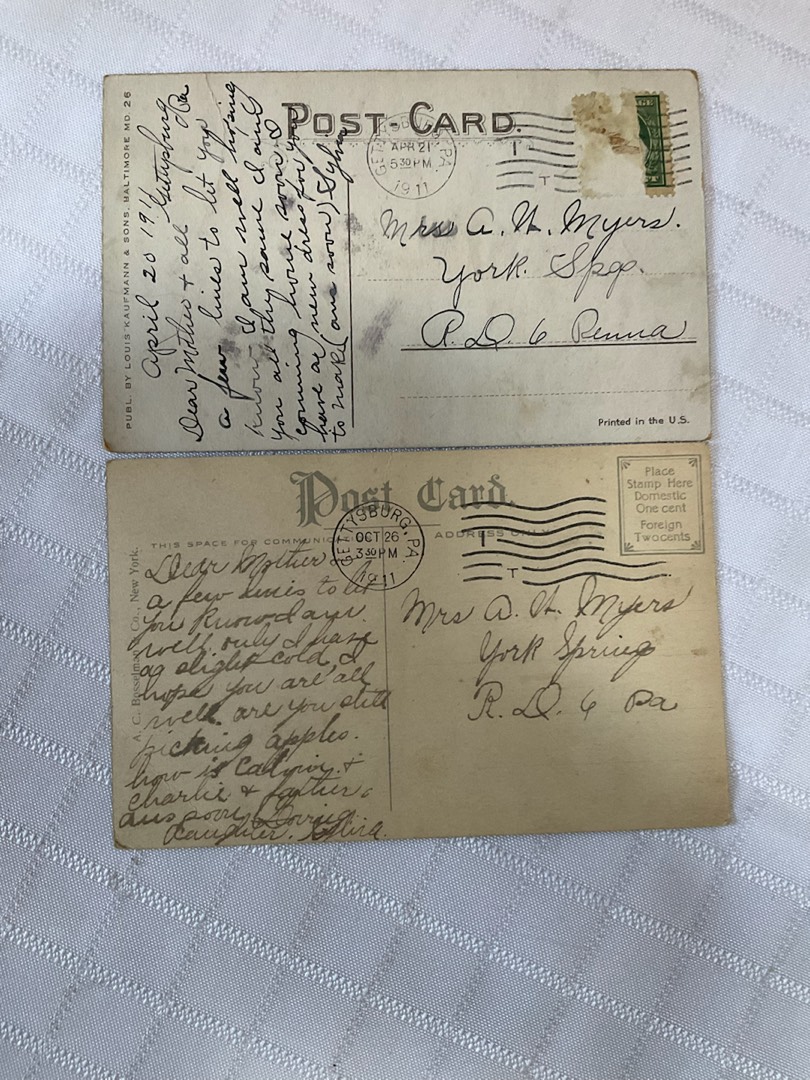 PUBL. BY LOUIS KAUFMANN & SONS, BALTIMORE MD. 26
POST-CARD.
GETTYSBURG, PA.
APR 21
5 30 PM
1911
T
April 20 1911 Gettysburg Pa
Dear Mother & all let you
a few lines to
know I am well hoping
you all thy same I am
comming home soon I
have a new dress for you
to make (ans soon) Sylvia
Mrs A. H. Myers.
York. Spg.
R. D. 6 Penna
Printed in the U.S.
Post Card.
Place
Stamp Here
Domestic
One cent
Foreign
Two cents
GETTYSBURG, PA.
OCT 26
3 30 PM
1911
T
THIS SPACE FOR COMMUNIC
ADDRESS ONLY
A. C. Bosselman Co., New York.
Dear Mother
a few lines to let
you know I am
well. only I have
a slight cold, I
hope you are all
well. are you still
picking apples.
how is Calvin. +
Charlie & father.
ans soon Loving
Daughter.
Mrs A. H. Myers
York Spring
R. D. 6 Pa